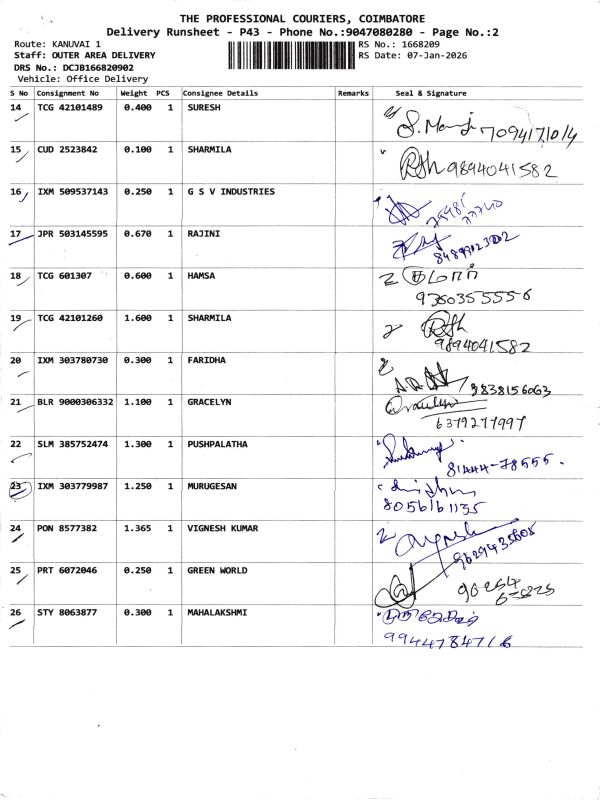 THE PROFESSIONAL COURIERS, COIMBATORE
Delivery Runsheet - P43 - Phone No.:9047080280 - Page No.:2
Route: KANUVAI 1
Staff: OUTER AREA DELIVERY
DRS No.: DCJB166820902
Vehicle: Office Delivery
RS No.: 1668209
RS Date: 07-Jan-2026
S No Consignment No Weight PCS Consignee Details Remarks Seal & Signature
14 TCG 42101489 0.400 1 SURESH
7094171014
15 CUD 2523842 0.100 1 SHARMILA
9894041582
16 IXM 509537143 0.250 1 G S V INDUSTRIES
17 JPR 503145595 0.670 1 RAJINI
18 TCG 601307 0.600 1 HAMSA
9360355556
19 TCG 42101260 1.600 1 SHARMILA
9894041582
20 IXM 303780730 0.300 1 FARIDHA
9838156063
21 BLR 9000306332 1.100 1 GRACELYN
Gracelyn
6379277997
22 SLM 385752474 1.300 1 PUSHPALATHA
81444-78555.
23 IXM 303779987 1.250 1 MURUGESAN
8056161135
24 PON 8577382 1.365 1 VIGNESH KUMAR
9629435605
25 PRT 6072046 0.250 1 GREEN WORLD
26 STY 8063877 0.300 1 MAHALAKSHMI
9944784716